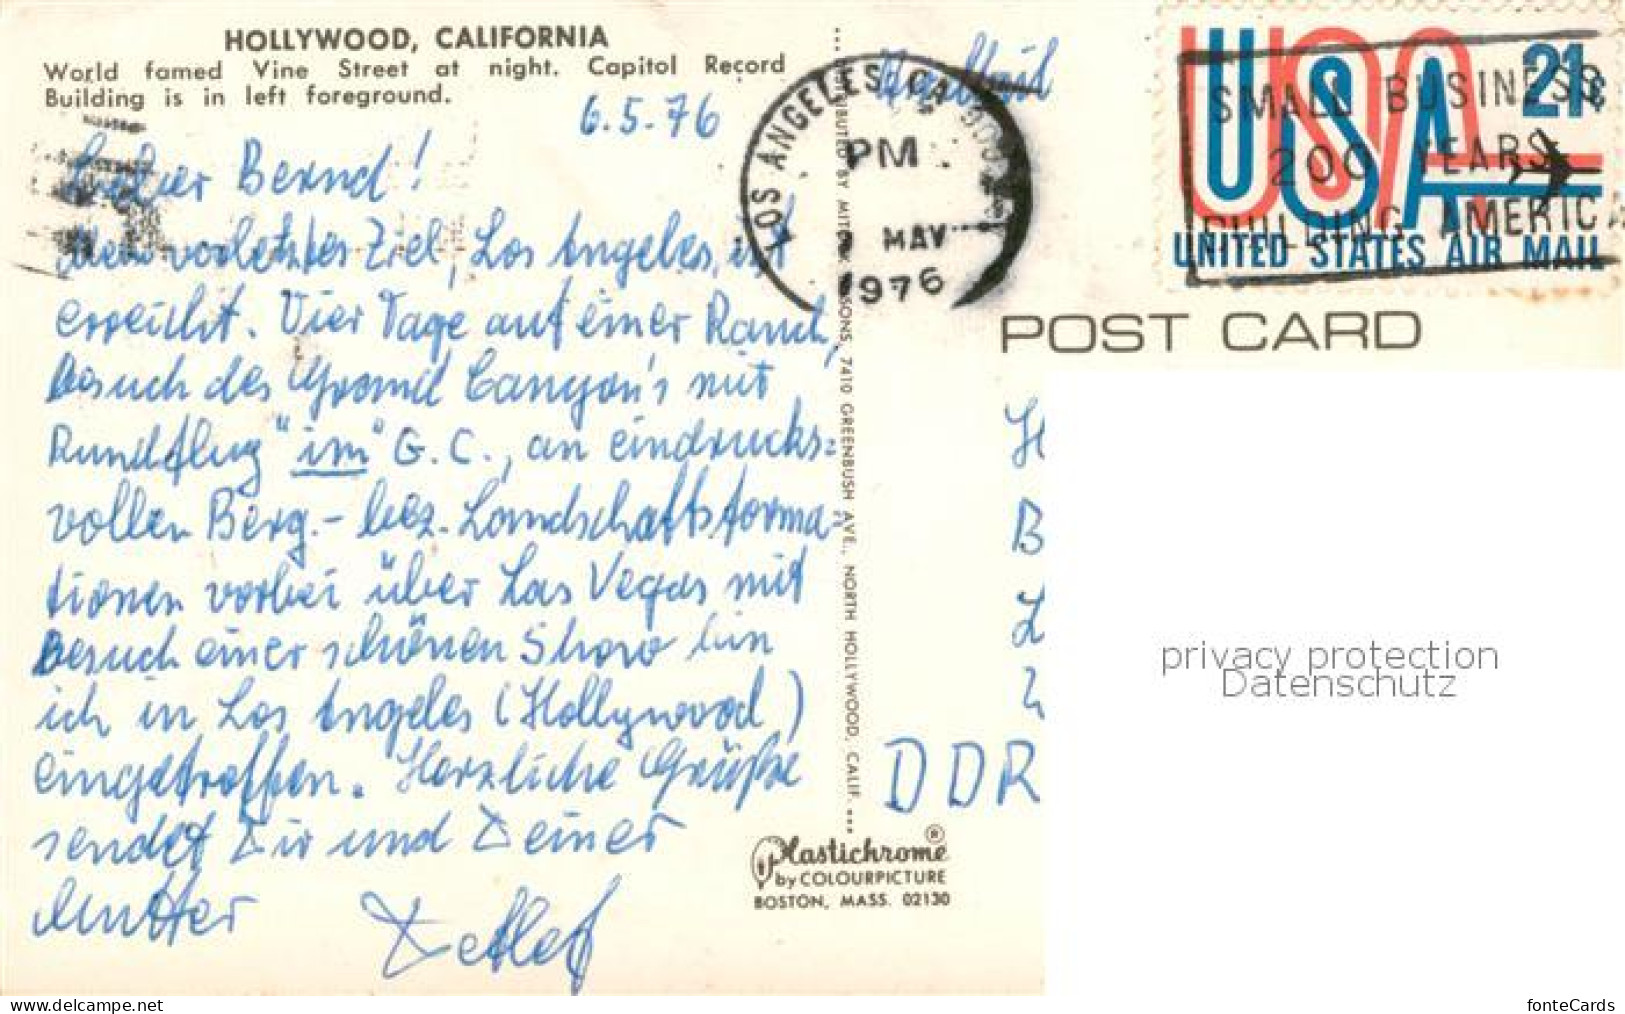 HOLLYWOOD, CALIFORNIA
World famed Vine Street at night. Capitol Record
Building is in left foreground.
6.5.76
Lieber Bernd!
Mein vorletztes Ziel, Los Angeles, ist
erreicht. Vier Tage auf einer Ranch,
Besuch des Grand Canyon's mit
Rundflug "im" G.C., an eindrucks=
vollen Berg- bez. Landschaftsforma-
tionen vorbei über Las Vegas mit
Besuch einer schönen Show bin
ich in Los Angeles (Hollywood)
eingetroffen. Herzliche Grüße
sendet Dir und Deiner
Mutter
Detlef
DISTRIBUTED BY MITOCK & SONS, 7410 GREENBUSH AVE., NORTH HOLLYWOOD, CALIF.
LOS ANGELES, CA
PM
MAY
1976
SMALL BUSINESS
200 YEARS
BUILDING AMERICA
USA 21¢
UNITED STATES AIR MAIL
POST CARD
H
B
L
DDR
Plastichrome®
by COLOURPICTURE
BOSTON, MASS. 02130
privacy protection
Datenschutz
www.delcampe.net
fonteCards